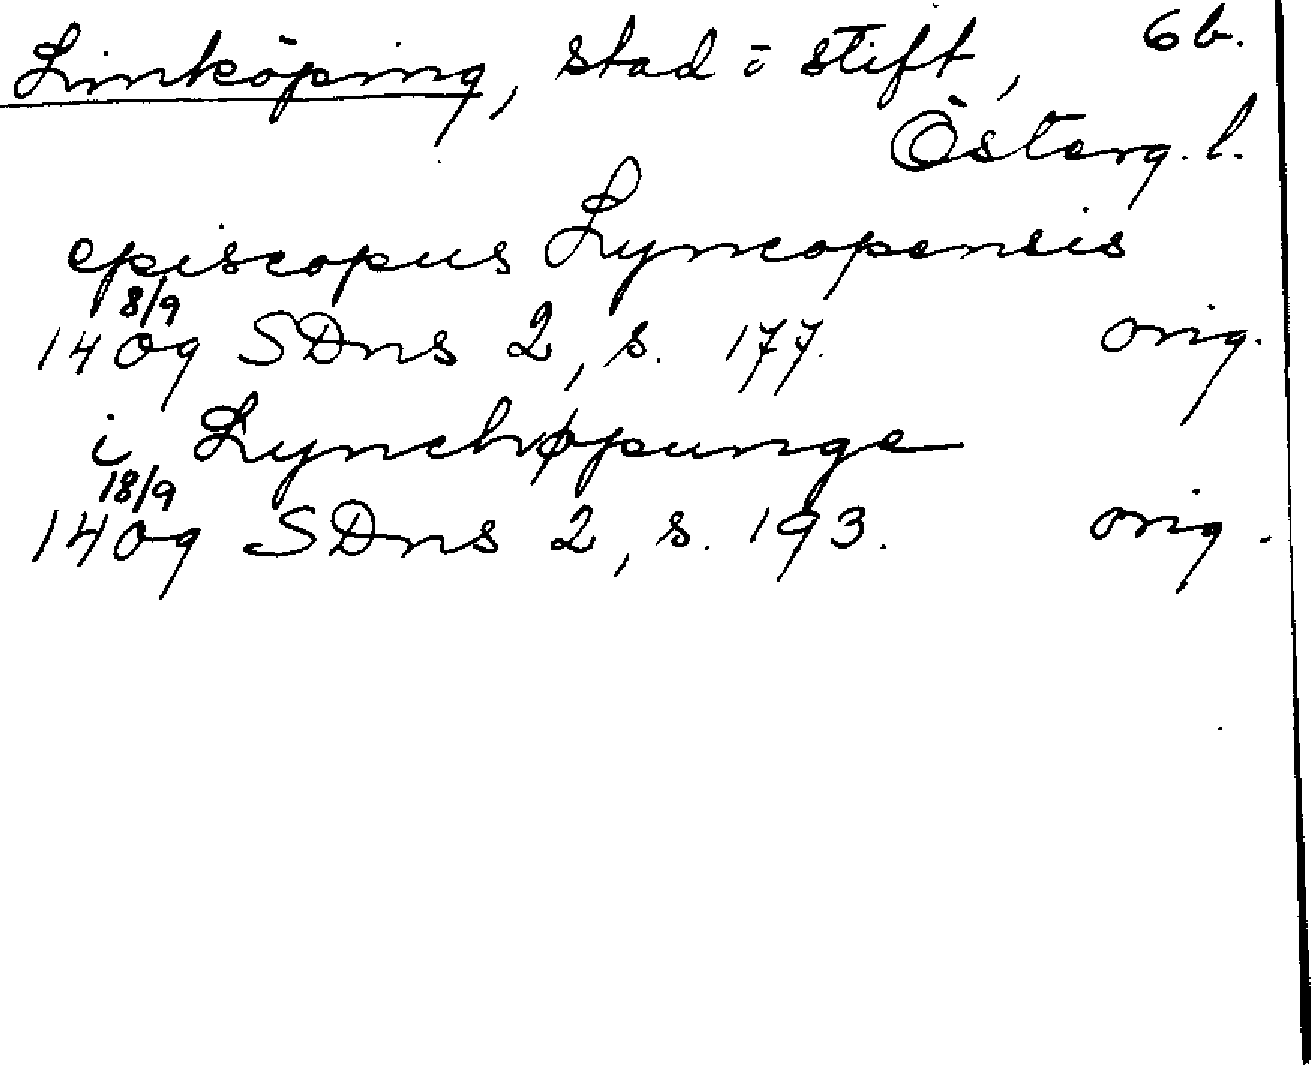 Linköping, stad o stift, 6b.
Österg. l.
episcopus Lyncopensis
8/9
1409 SDns 2, s. 177. orig.
i Lynchøpunge
18/9
1409 SDns 2, s. 193. orig.